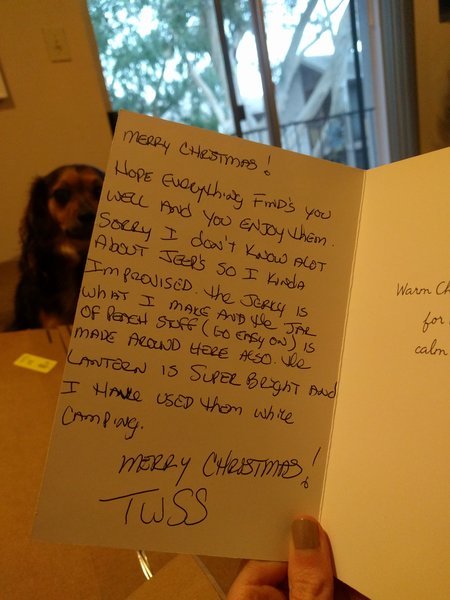 MERRY CHRISTMAS!
HOPE EVERYTHING FIND'S YOU
WELL AND YOU ENJOY THEM.
SORRY I DON'T KNOW ALOT
ABOUT JEEP'S SO I KINDA
IMPROVISED. THE JERKY IS
WHAT I MAKE AND THE JAR
OF PEACH STUFF (GO EASY ON) IS
MADE AROUND HERE ALSO. THE
LANTERN IS SUPER BRIGHT AND
I HAVE USED THEM WHILE
CAMPING.
MERRY CHRISTMAS!
TWSS
Warm Ch
for
calm